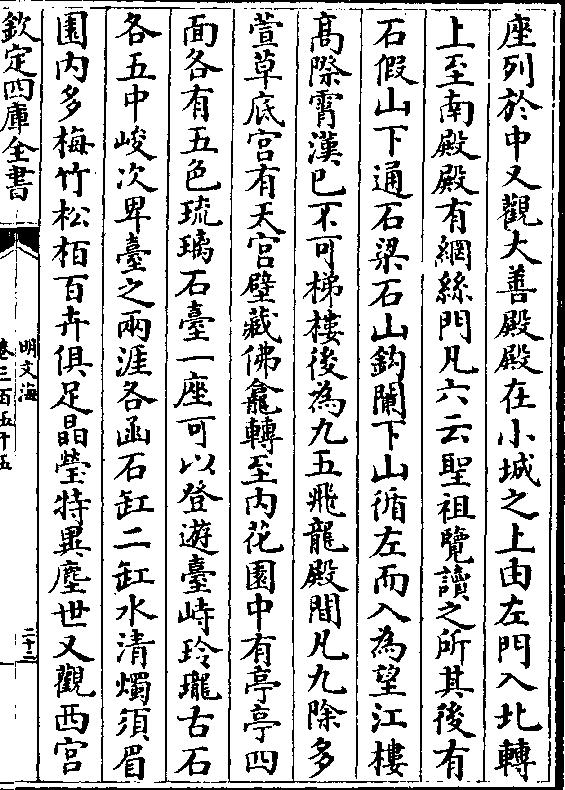 座列於中又觀大善殿殿在小城之上由左門入北轉
上至南殿殿有網絲門凡六云聖祖覽讀之所其後有
石假山下通石梁石山鈎闌下山循左而入為望江樓
髙際霄漢已不可梯樓後為九五飛龍殿間凡九除多
萱草底宫有天宫壁藏佛龕轉至内花園中有亭亭四
面各有五色琉璃石臺一座可以登遊臺峙玲瓏古石
各五中峻次卑臺之兩涯各函石缸二缸水清燭須眉
園内多梅竹松栢百卉俱足晶瑩特異塵世又觀西宫
欽定四庫全書
明文海
卷三百五十五
二十二